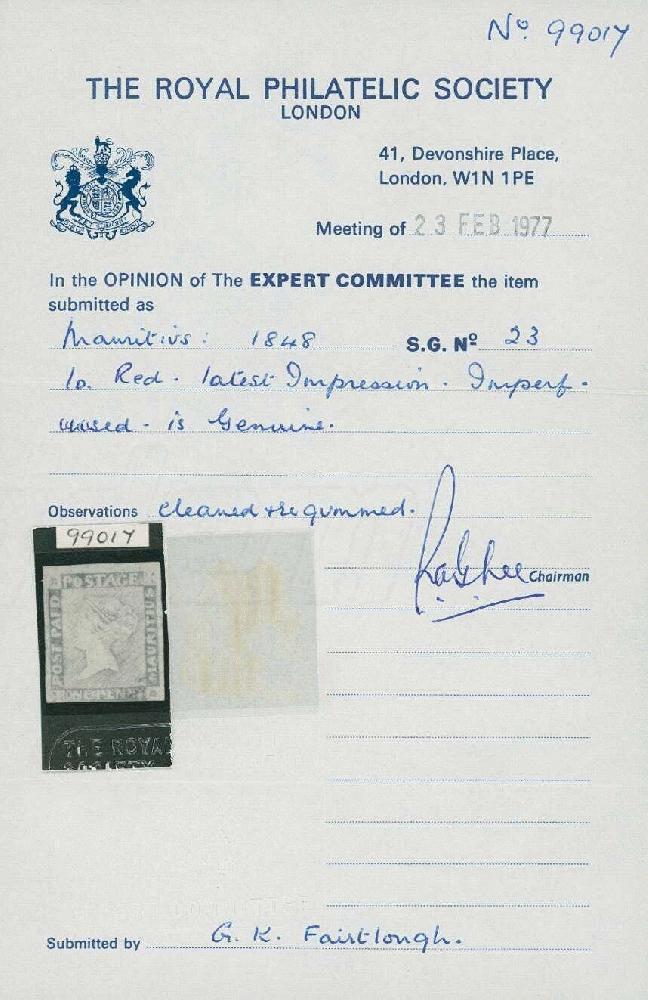 Nº 99017
THE ROYAL PHILATELIC SOCIETY
LONDON
41, Devonshire Place,
London. W1N 1PE
Meeting of 23 FEB 1977
In the OPINION of The EXPERT COMMITTEE the item
submitted as
Mauritius: 1848 S.G. Nº 23
1d. Red. latest Impression. Imperf.
unused - is Genuine.
Observations cleaned & regummed.
Chairman
99017
POSTAGE
POST PAID
MAURITIUS
ONE PENNY
THE ROYA
SOCIETY
Submitted by G. K. Fairtlough.